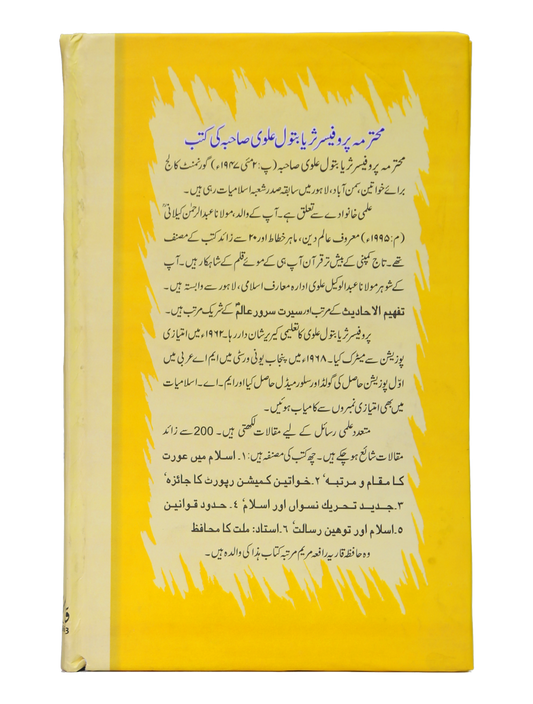 محترمہ پروفیسر ثریا بتول علوی صاحبہ کی کتب
محترمہ پروفیسر ثریا بتول علوی صاحبہ (پ:۲مئی ۱۹۴۷ء) گورنمنٹ کالج
برائے خواتین، سمن آباد، لاہور میں سابقہ صدر شعبہ اسلامیات رہی ہیں۔
علمی خانوادے سے تعلق ہے۔ آپ کے والد، مولانا عبدالرحمٰن کیلانیؒ
(م:۱۹۹۵ء) معروف عالم دین، ماہر خطاط اور ۲۰ سے زائد کتب کے مصنف
تھے۔ تاج کمپنی کے بیش تر قرآن آپ ہی کے موئے قلم کے شاہکار ہیں۔ آپ
کے شوہر مولانا عبدالوکیل علوی ادارہ معارف اسلامی، لاہور سے وابستہ ہیں۔
تفہیم الاحادیث کے مرتب اور سیرت سرور عالمؐ کے شریک مرتب ہیں۔
پروفیسر ثریا بتول علوی کا تعلیمی کیریر شان دار رہا۔ ۱۹۶۲ء میں امتیازی
پوزیشن سے میٹرک کیا۔ ۱۹۶۸ء میں پنجاب یونی ورسٹی میں ایم اے عربی میں
اوّل پوزیشن حاصل کی گولڈ اور سلور میڈل حاصل کیا اور ایم۔اے۔ اسلامیات
میں بھی امتیازی نمبروں سے کامیاب ہوئیں۔
متعدد علمی رسائل کے لیے مقالات لکھتی ہیں۔ 200 سے زائد
مقالات شائع ہو چکے ہیں۔ چھ کتب کی مصنفہ ہیں: ۱. اسلام میں عورت
کا مقام و مرتبہ‘ ۲.خواتین کمیشن رپورٹ کا جائزہ‘
۳.جدید تحریک نسواں اور اسلام‘ ٤. حدود قوانین
۵.اسلام اور توھین رسالت‘ ٦.استاد: ملت کا محافظ
وہ حافظہ قاریہ رافعہ مریم مرتبہ کتاب ہذا کی والدہ ہیں۔